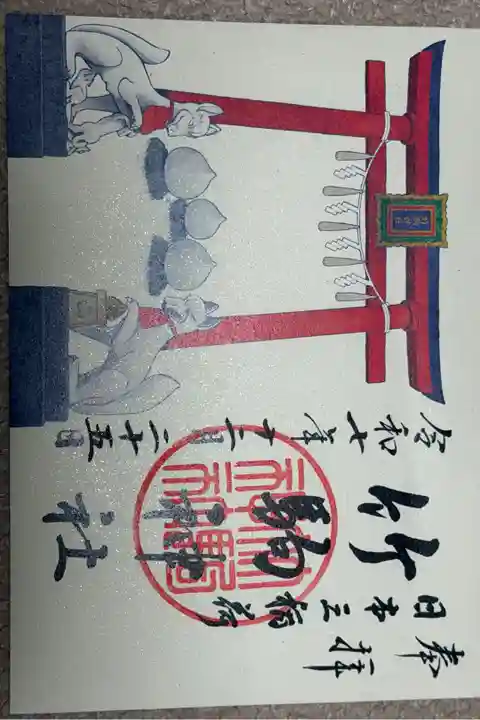 奉拝
日本三稲荷
竹駒神社
令和七年十二月二十五日
竹駒神社